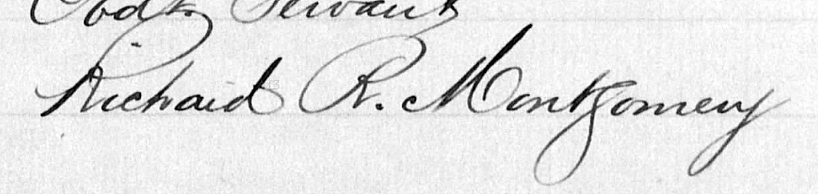 Obdt Servant
Richard R. Montgomery